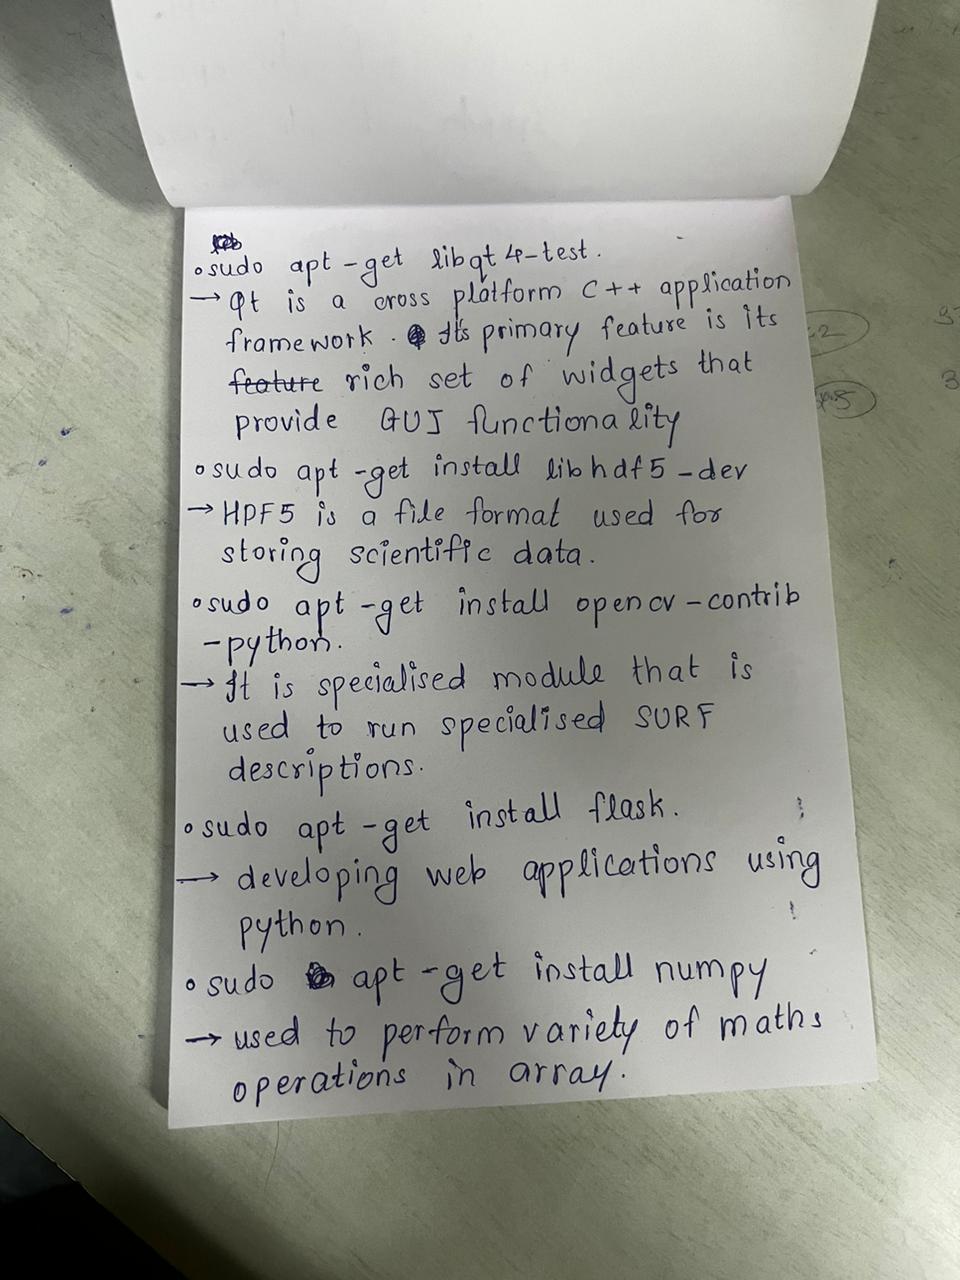 • sudo apt-get libqt4-test.
→ Qt is a cross platform C++ application
framework. Its primary feature is its
feature rich set of widgets that
provide GUI functionality
• sudo apt-get install libhdf5-dev
→ HDF5 is a file format used for
storing scientific data.
• sudo apt-get install opencv-contrib
-python.
→ It is specialised module that is
used to run specialised SURF
descriptions.
• sudo apt-get install flask.
→ developing web applications using
python.
• sudo apt-get install numpy
→ used to perform variety of maths
operations in array.